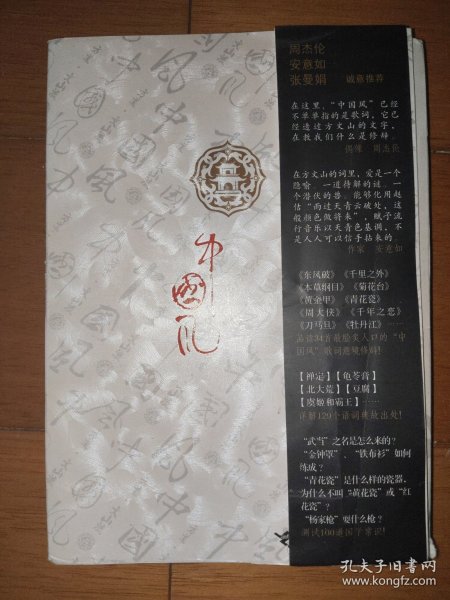 中国风
周杰伦
安意如
张曼娟 诚意推荐
在这里，“中国风”已经
不单单指的是歌词，它已
经透过方文山的文字，
在教我们什么是修辞。
偶像 周杰伦
在方文山的词里，爱是一个
隐喻，一道待解的谜，一
个潜伏的兽。能够化用越
估“雨过天青云破处，这
般颜色做将来”，赋予流
行音乐以天青色基调，不
是人人可以信手拈来的。
作家 安意如
《东风破》《千里之外》
《本草纲目》《菊花台》
《黄金甲》《青花瓷》
《周大侠》《千年之恋》
《刀马旦》《牡丹江》……
品读34首最脍炙人口的“中
国风”歌词意境修辞！
【禅定】【龟苓膏】
【北大荒】【豆腐】
【虞姬和霸王】……
详解129个语词典故出处！
“武当”之名是怎么来的？
“金钟罩”、“铁布衫”如何
炼成？
“青花瓷”是什么样的瓷器，
为什么不叫“黄花瓷”或“红
花瓷”？
“杨家枪”耍什么枪？
测试100道国学常识！
孔夫子旧书网
www.kongfz.com